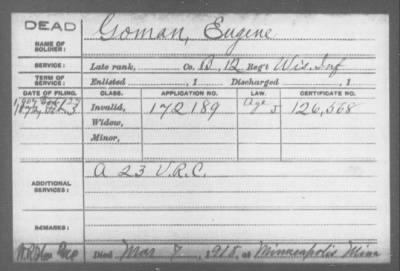 DEAD
Goman, Eugene
NAME OF SOLDIER:
SERVICE: Late rank, Co. B, 12 Reg't Wis. Inf
TERM OF SERVICE: Enlisted , 1 Discharged , 1
DATE OF FILING. CLASS. APPLICATION NO. LAW. CERTIFICATE NO.
Invalid, 172189 126,568
Widow,
Minor,
A 23 V.R.C.
ADDITIONAL SERVICES:
REMARKS:
Died Mar 7, 1918, at Minneapolis Minn